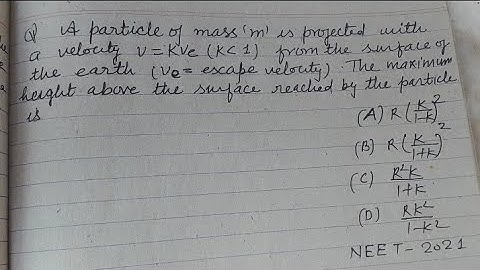 Q A particle of mass 'm' is projected with
a velocity v = KVe (K<1) from the surface of
the earth (Ve = escape velocity). The maximum
height above the surface reached by the particle
is
(A) R(K/1-K)²
(B) R(K/1+K)²
(C) R²K/1+K
(D) RK²/1-K²
NEET-2021